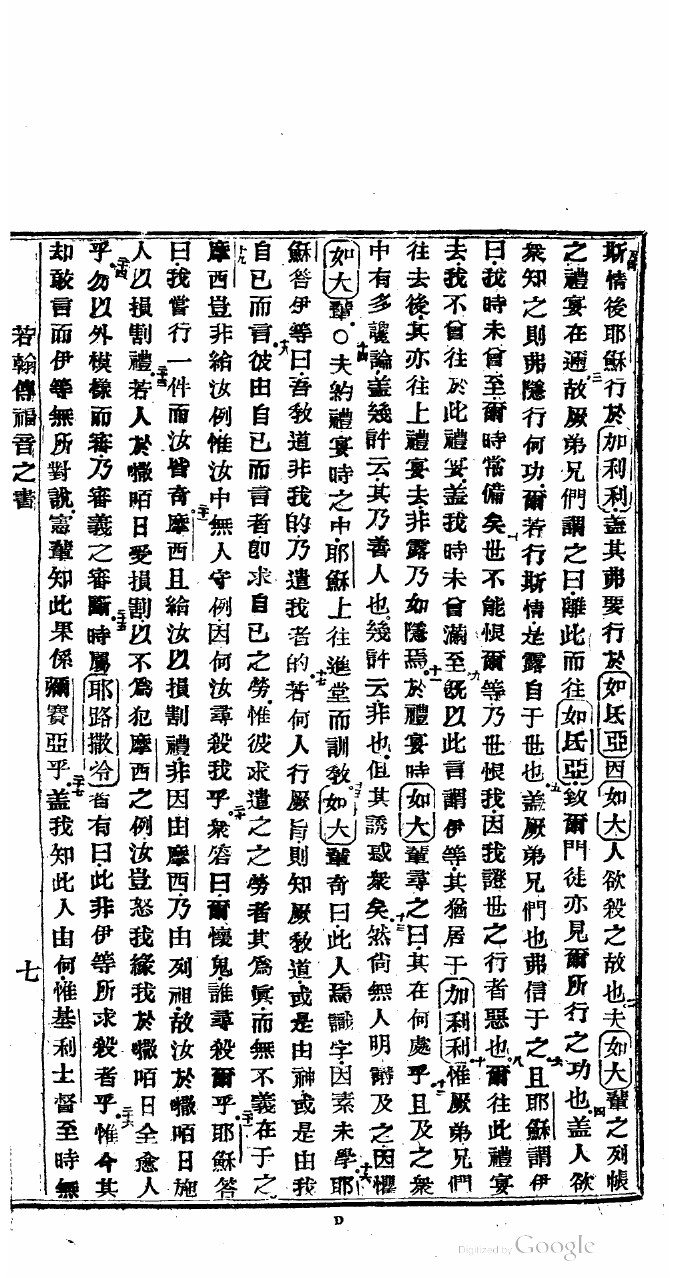 斯情後耶穌行於加利利蓋其弗要行於如氐亞因如大人欲殺之故也夫如大輩之列帳
之禮宴在邇故厥弟兄們謂之曰離此而往如氐亞致爾門徒亦見爾所行之功也蓋人欲
衆知之則弗隱行何功爾若行斯情露自于世也蓋厥弟兄們也弗信于之且耶穌謂伊
曰我時未曾至爾時常備矣世不能恨爾等乃世恨我因我證世之行者惡也爾往此禮宴
去我不曾往於此禮宴蓋我時未曾滿至旣以此言謂伊等其猶居于加利利惟厥弟兄們
往去後其亦往上禮宴去非露乃如隱焉於禮宴時如大輩尋之曰其在何處乎且及之衆
中有多讒論蓋幾許云其乃善人也幾許云非也但其誘惑衆矣然尚無人明講及之因懼
如大輩○夫約禮宴時之中耶穌上往進堂而訓敎如大輩奇曰此人焉識字因素未學耶
穌答伊等曰吾敎道非我的乃遣我者的若何人行厥旨則知厥敎道或是由神或是由我
自己而言彼由自己而言者卽求自己之勞惟彼求遣之之勞者其為眞而無不義在于之
摩西豈非給汝例惟汝中無人守例因何汝尋殺我乎衆答曰爾懷鬼誰尋殺爾乎耶穌答
曰我嘗行一件而汝皆奇摩西且給汝以損割禮非因由摩西乃由列祖故汝於嚬咟日施
人以損割禮若人於嚬咟日受損割以不為犯摩西之例汝豈怒我緣我於嚬咟日全愈人
乎勿以外模樣而審乃審義之審斷時屬耶路撒冷者有曰此非伊等所求殺者乎惟今其
却敢言而伊等無所對說憲輩知此果係彌賽亞乎蓋我知此人由何惟基利士督至時無
若翰傳福音之書
七
D
Digitized by Google